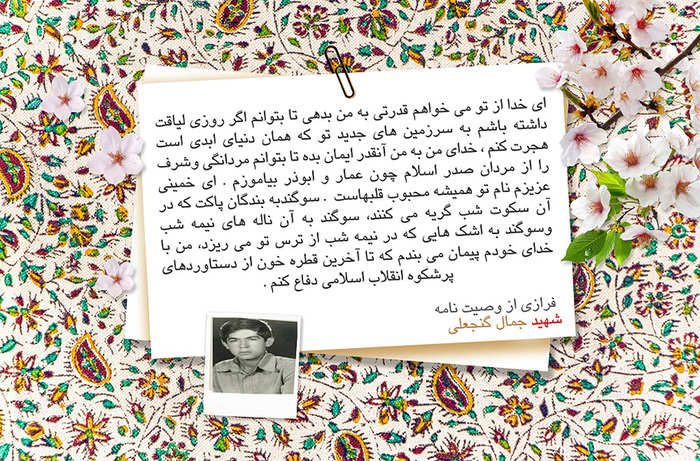 ای خدا از تو می خواهم قدرتی به من بدهی تا بتوانم اگر روزی لیاقت
داشته باشم به سرزمین های جدید تو که همان دنیای ابدی است
هجرت کنم ، خدای من به من آنقدر ایمان بده تا بتوانم مردانگی وشرف
را از مردان صدر اسلام چون عمار و ابوذر بیاموزم . ای خمینی
عزیزم نام تو همیشه محبوب قلبهاست . سوگندبه بندگان پاکت که در
آن سکوت شب گریه می کنند، سوگند به آن ناله های نیمه شب
وسوگند به اشک هایی که در نیمه شب از ترس تو می ریزد، من با
خدای خودم پیمان می بندم که تا آخرین قطره خون از دستاوردهای
پرشکوه انقلاب اسلامی دفاع کنم .
فرازی از وصیت نامه
شهید جمال گنجعلی